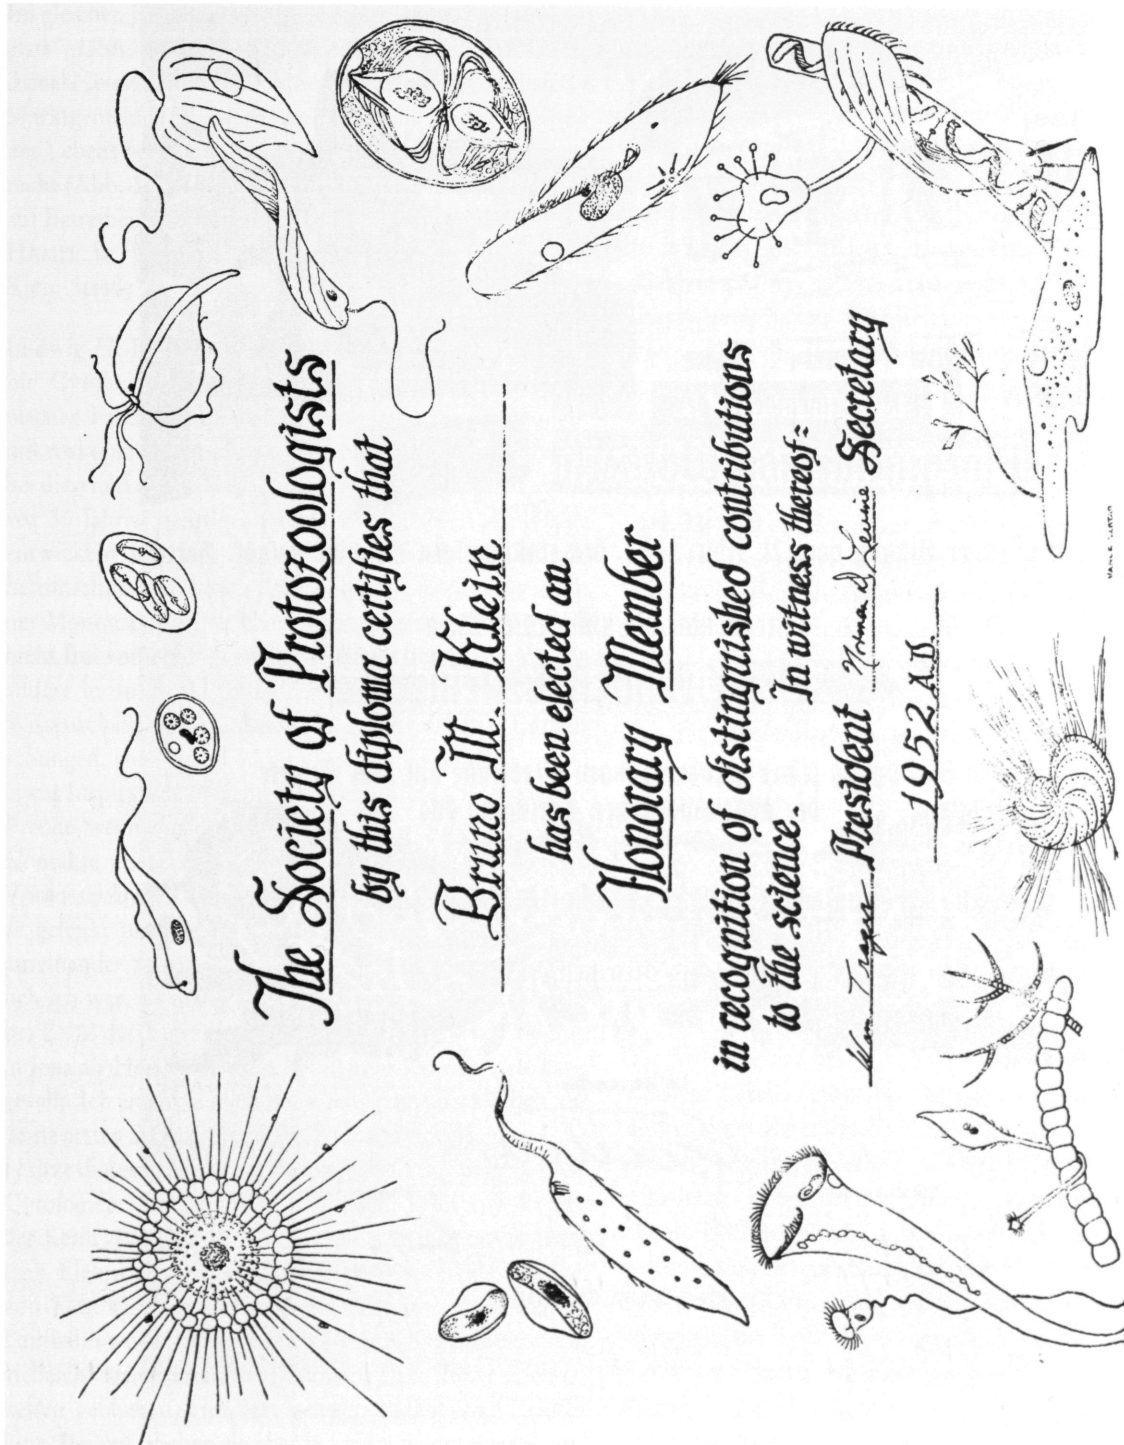 The Society of Protozoologists
by this diploma certifies that
Bruno M. Klein
has been elected an
Honorary Member
in recognition of distinguished contributions
to the science. In witness thereof=
Wm Trager President Norman D Levine Secretary
1952 A.D.